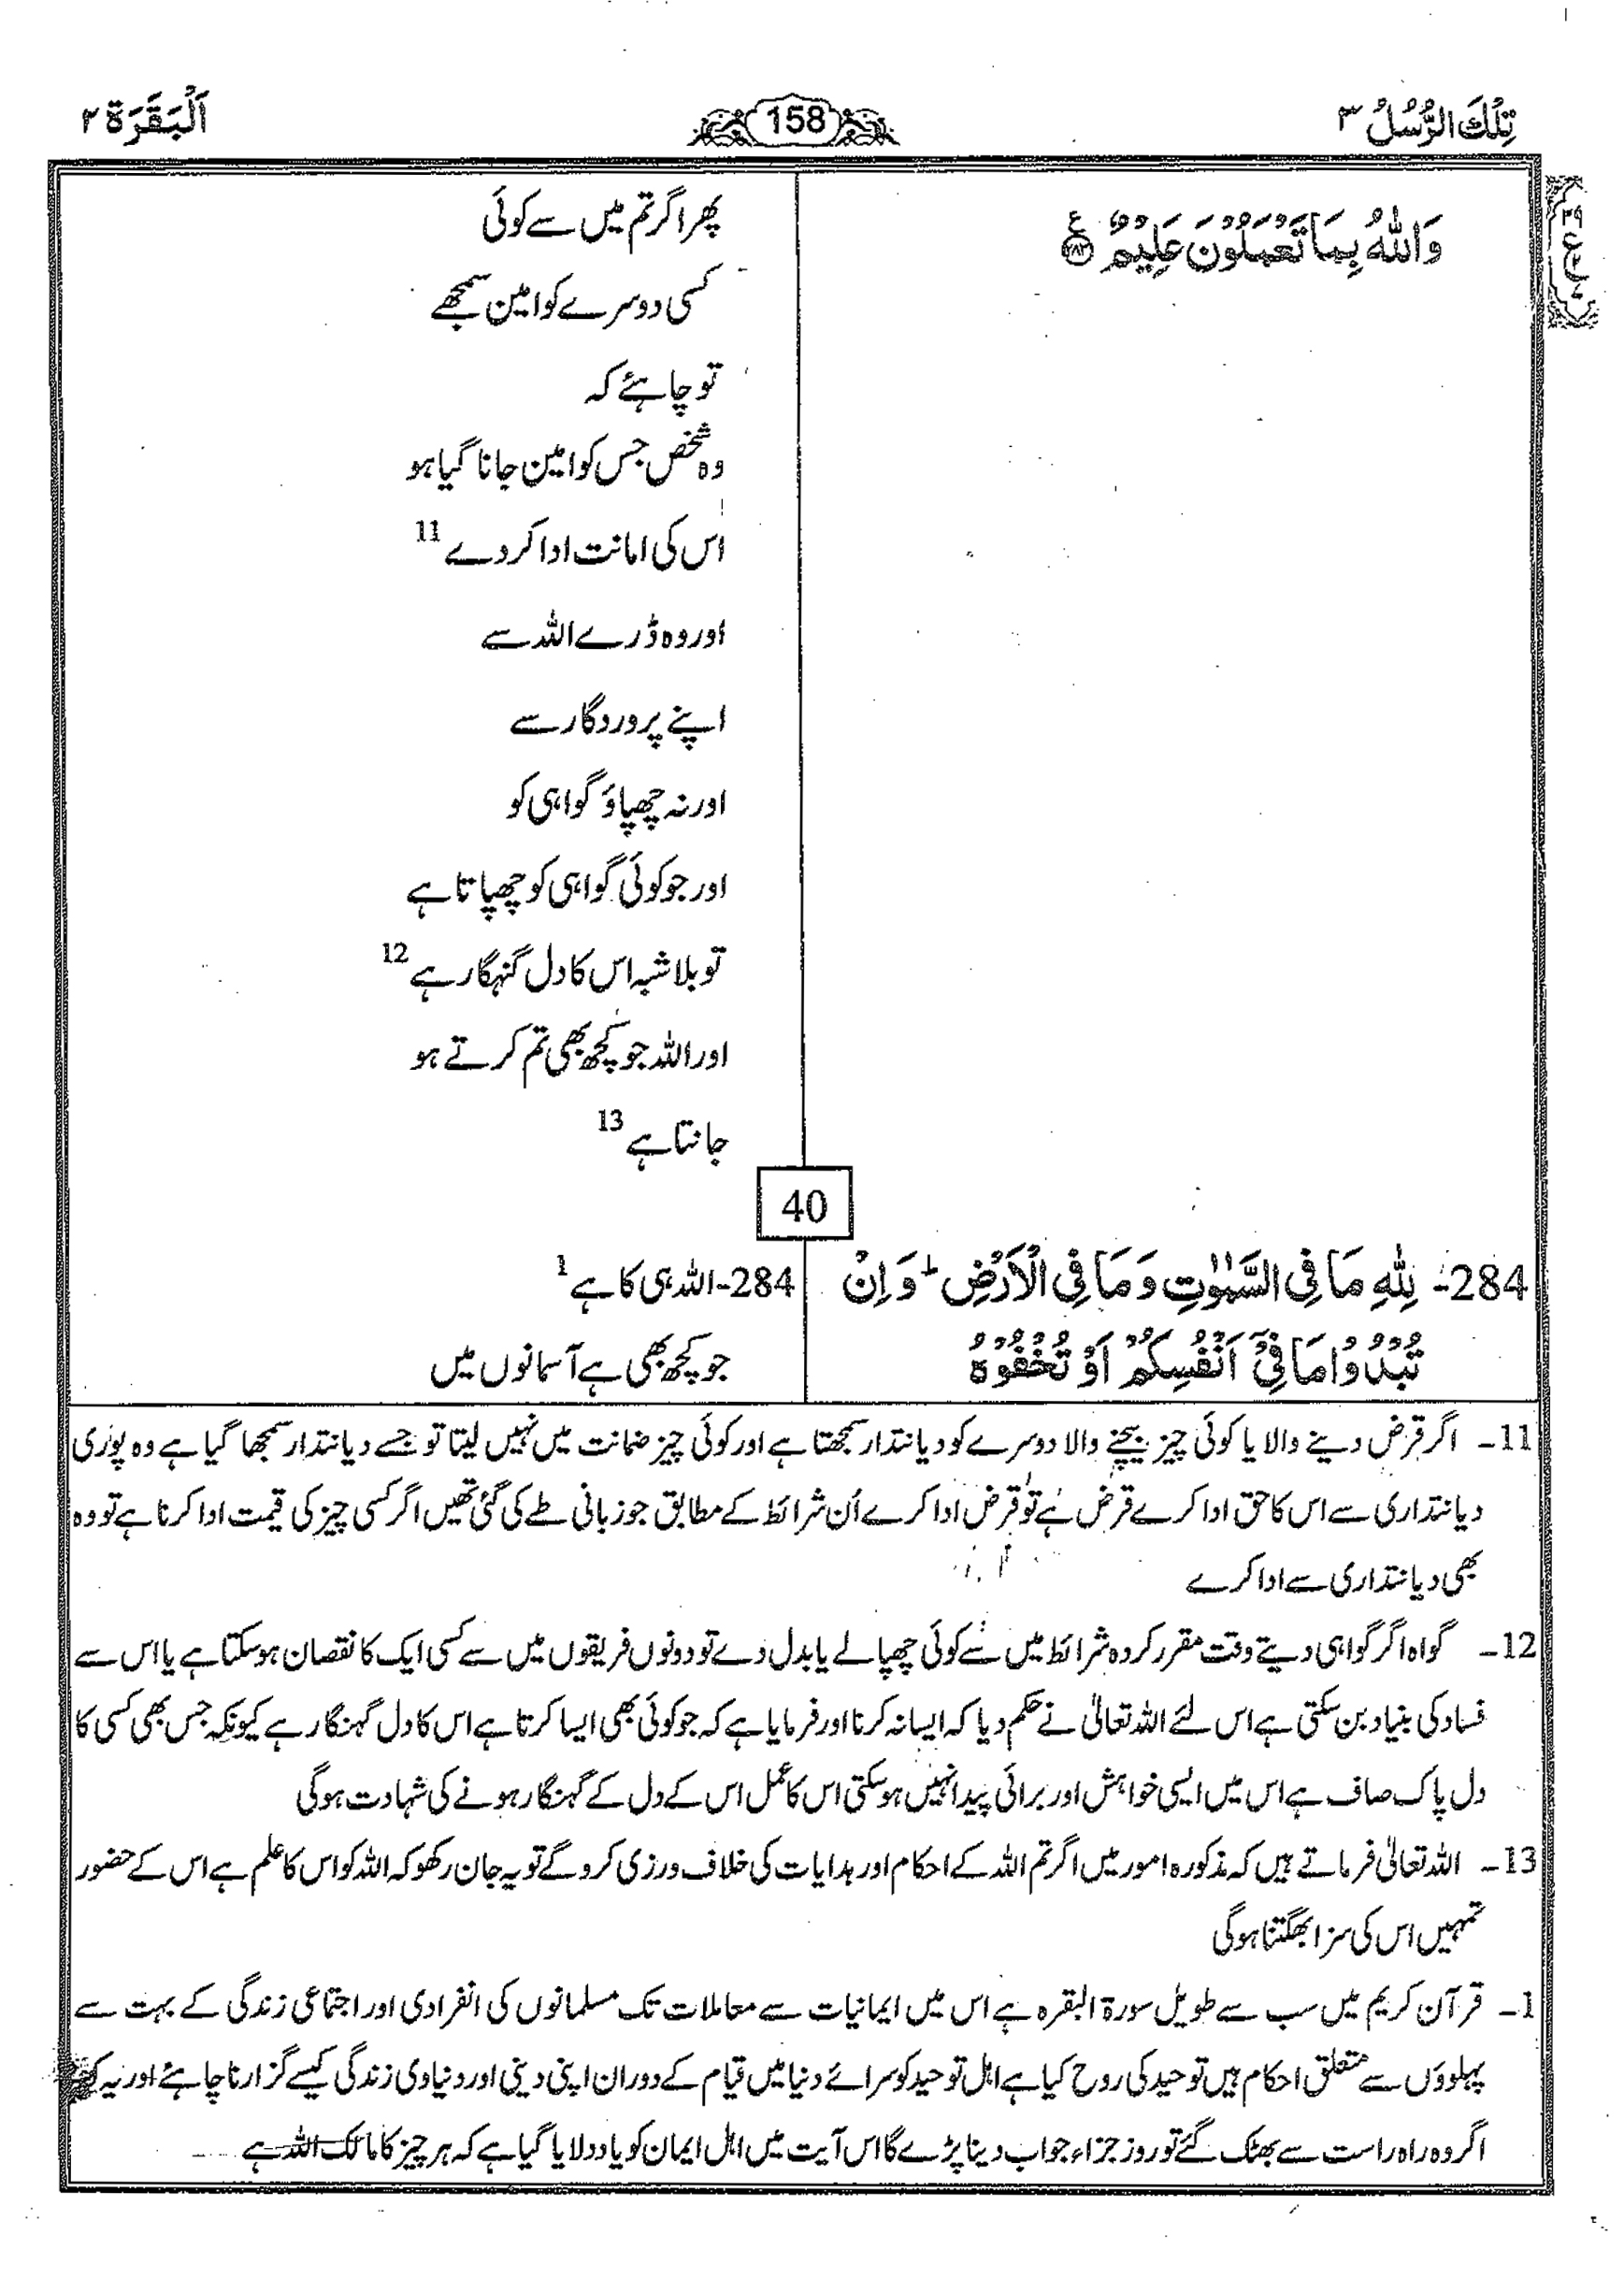 تِلْكَ الرُّسُلُ ٣
158
اَلْبَقَرَة ٢
وَاللّٰهُ بِمَا تَعْمَلُوْنَ عَلِيْمٌ ﴿٢٨٣﴾ ع
پھر اگر تم میں سے کوئی
کسی دوسرے کو امین سمجھے
تو چاہئے کہ
وہ شخص جس کو امین جانا گیا ہو
اس کی امانت ادا کر دے 11
اور وہ ڈرے اللہ سے
اپنے پروردگار سے
اور نہ چھپاؤ گواہی کو
اور جو کوئی گواہی کو چھپاتا ہے
تو بلا شبہ اس کا دل گنہگار ہے 12
اور اللہ جو کچھ بھی تم کرتے ہو
جانتا ہے 13
40
284- لِلّٰهِ مَا فِى السَّمٰوٰتِ وَ مَا فِى الْاَرْضِ ط وَ اِنْ
تُبْدُوْا مَا فِىْٓ اَنْفُسِكُمْ اَوْ تُخْفُوْهُ
284- اللہ ہی کا ہے 1
جو کچھ بھی ہے آسمانوں میں
11۔ اگر قرض دینے والا یا کوئی چیز بیچنے والا دوسرے کو دیانتدار سمجھتا ہے اور کوئی چیز ضمانت میں نہیں لیتا تو جسے دیانتدار سمجھا گیا ہے وہ پوری
دیانتداری سے اس کا حق ادا کرے قرض ہے تو قرض ادا کرے اُن شرائط کے مطابق جو زبانی طے کی گئی تھیں اگر کسی چیز کی قیمت ادا کرنا ہے تو وہ
بھی دیانتداری سے ادا کرے
12۔ گواہ اگر گواہی دیتے وقت مقرر کردہ شرائط میں سے کوئی چھپا لے یا بدل دے تو دونوں فریقوں میں سے کسی ایک کا نقصان ہو سکتا ہے یا اس سے
فساد کی بنیاد بن سکتی ہے اس لئے اللہ تعالیٰ نے حکم دیا کہ ایسا نہ کرنا اور فرمایا ہے کہ جو کوئی بھی ایسا کرتا ہے اس کا دل گہنگار ہے کیونکہ جس بھی کسی کا
دل پاک صاف ہے اس میں ایسی خواہش اور برائی پیدا نہیں ہو سکتی اس کا عمل اس کے دل کے گہنگار ہونے کی شہادت ہوگی
13۔ اللہ تعالیٰ فرماتے ہیں کہ مذکورہ امور میں اگر تم اللہ کے احکام اور ہدایات کی خلاف ورزی کرو گے تو یہ جان رکھو کہ اللہ کو اس کا علم ہے اس کے حضور
تمہیں اس کی سزا بھگتنا ہوگی
1۔ قرآن کریم میں سب سے طویل سورۃ البقرہ ہے اس میں ایمانیات سے معاملات تک مسلمانوں کی انفرادی اور اجتماعی زندگی کے بہت سے
پہلوؤں سے متعلق احکام ہیں توحید کی روح کیا ہے اہل توحید کو سرائے دنیا میں قیام کے دوران اپنی دینی اور دنیاوی زندگی کیسے گزارنا چاہئے اور یہ کہ
اگر وہ راہ راست سے بھٹک گئے تو روز جزاء جواب دینا پڑے گا اس آیت میں اہل ایمان کو یاد دلایا گیا ہے کہ ہر چیز کا مالک اللہ ہے